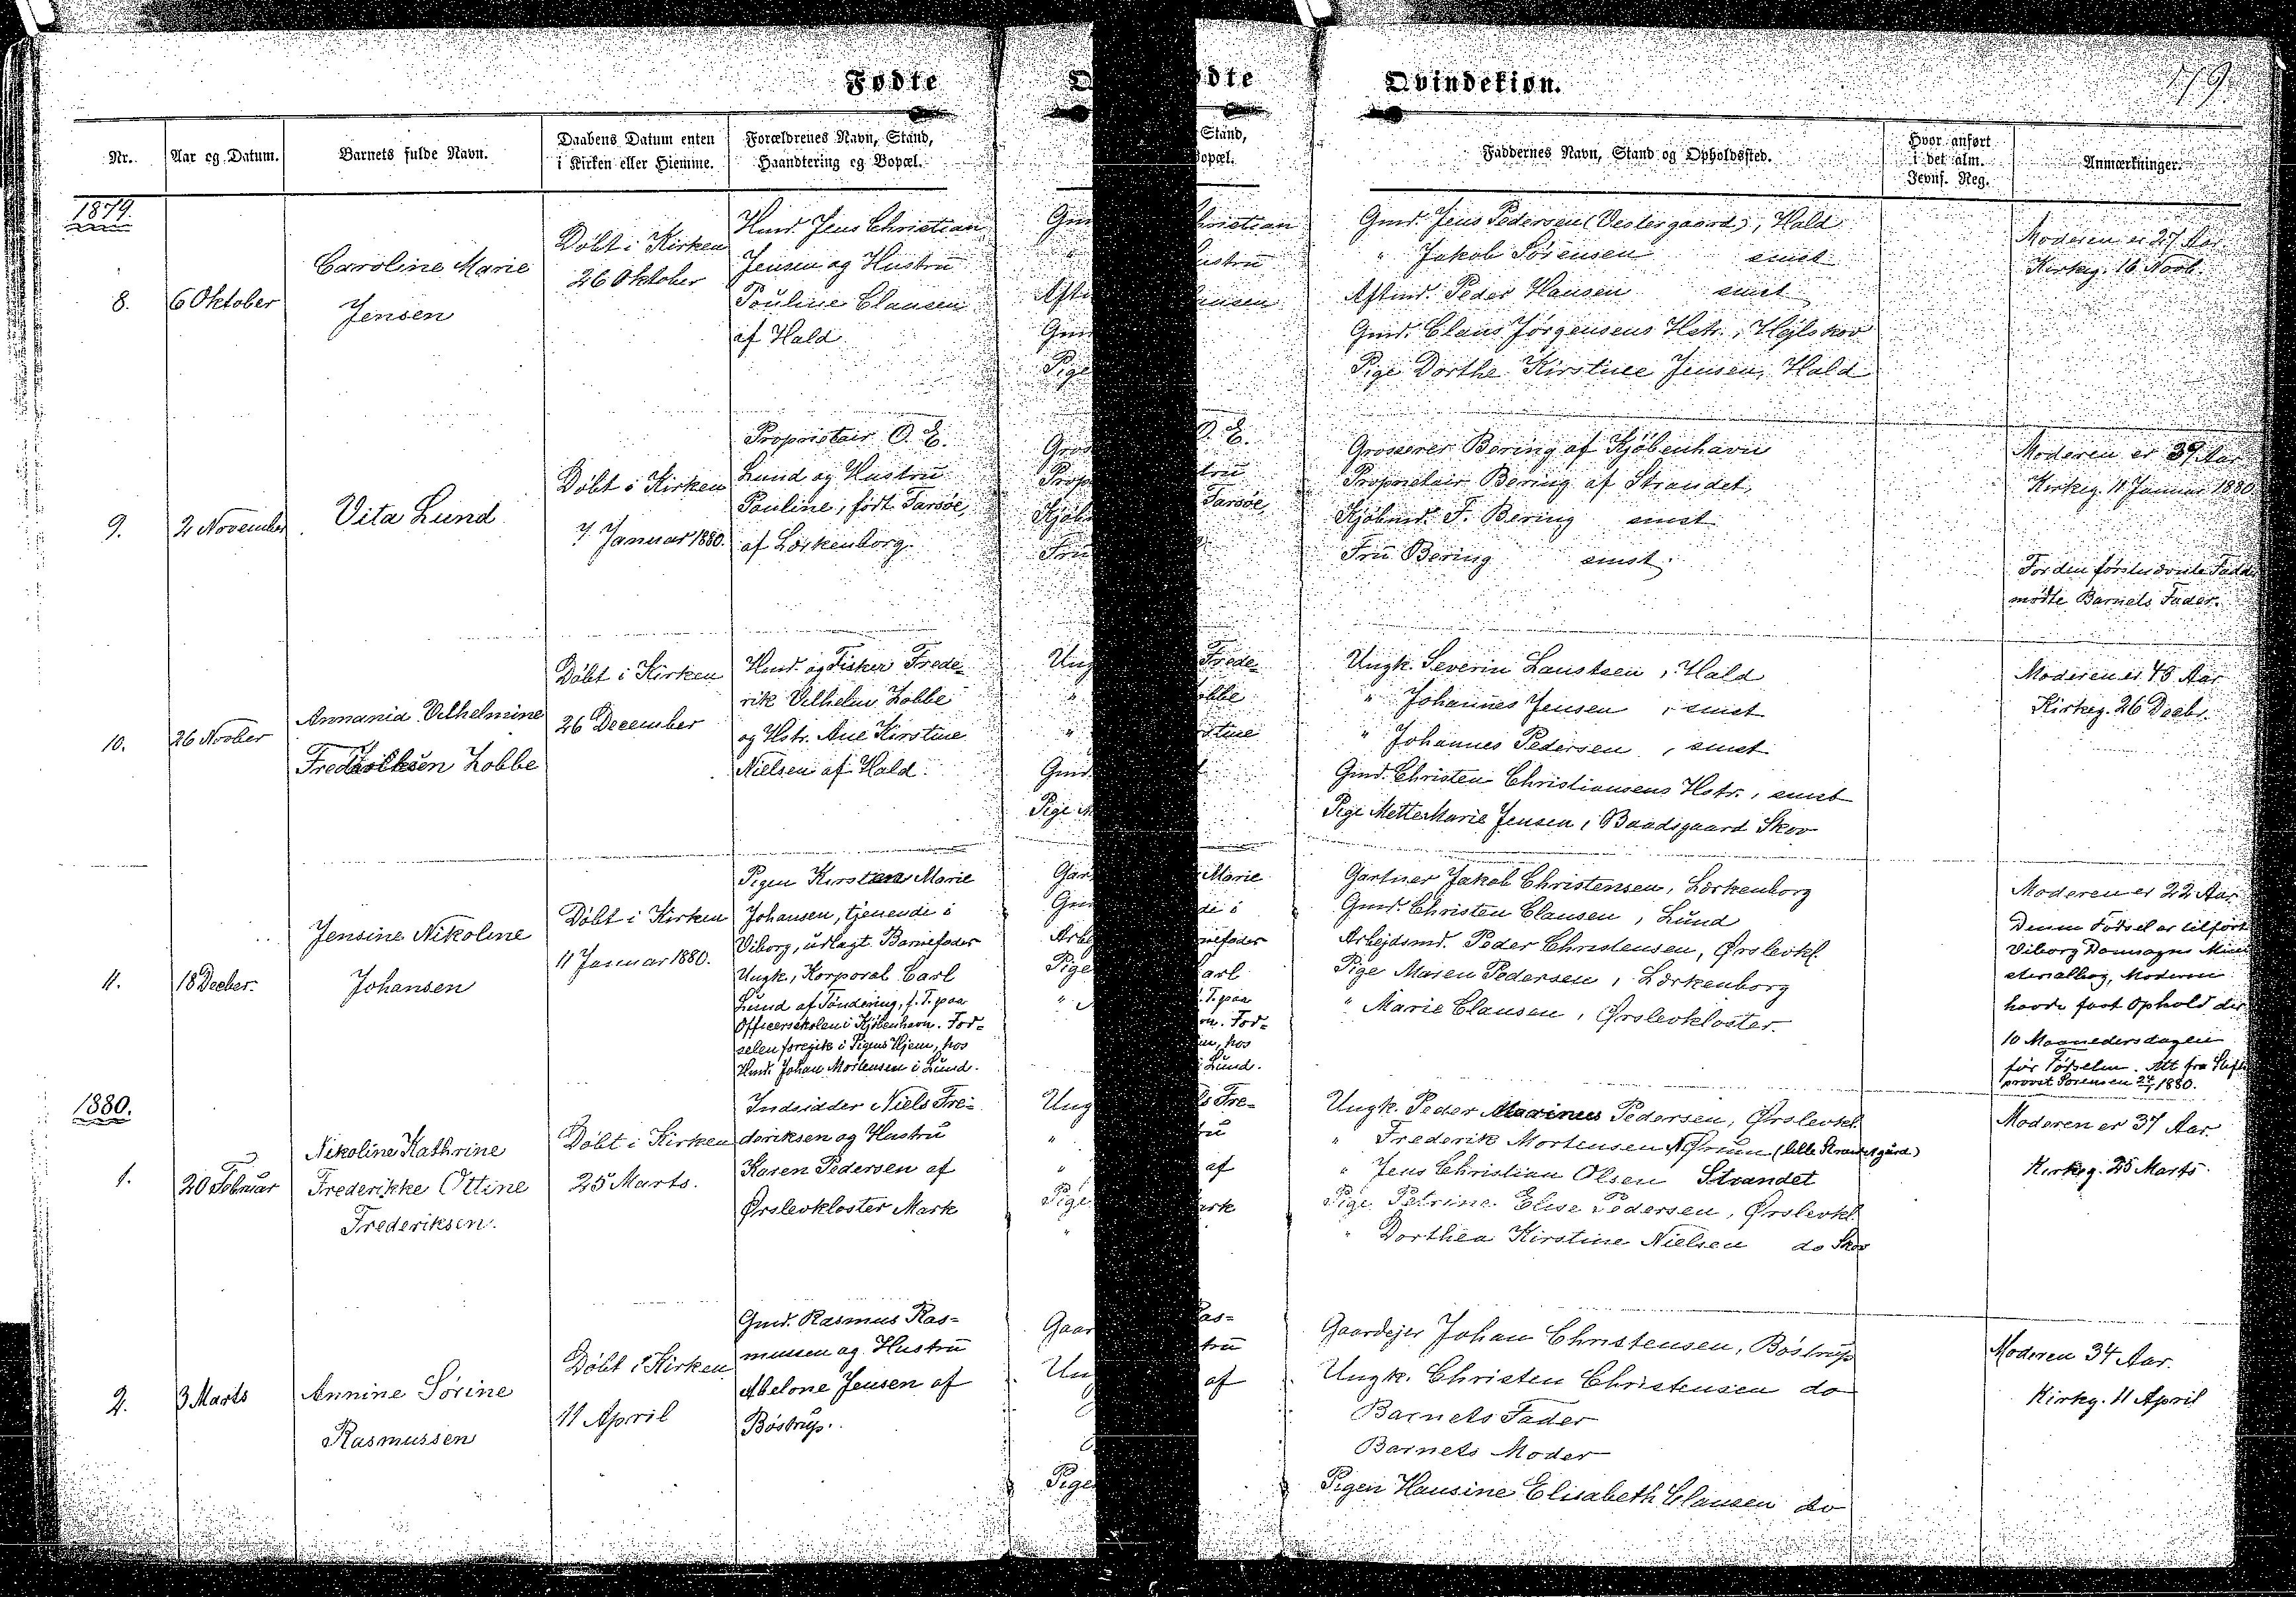 Fødte
Qvindekiøn.
179.
Nr.
Aar og Datum.
Barnets fulde Navn.
Daabens Datum enten
i Kirken eller Hiemme.
Forældrenes Navn, Stand,
Haandtering og Bopæl.
Faddernes Navn, Stand og Opholdssted.
Hvor anført
i det alm.
Jevnf. Reg.
Anmærkninger.
1879.
8.
6 Oktober
Caroline Marie
Jensen
Döbt i Kirken
26 Oktober
Hmd. Jens Christian
Jensen og Hustru
Pouline Clausen
af Hald
Gmd. Jens Pedersen (Vestergaard), Hald
" Jakob Sörensen emst
Aftmd. Peder Hansen emst
Gmd. Claus Jörgensens Hstr., Hejlskov
Pige Dorthe Kirstine Jensen, Hald
Moderen er 27 Aar
Kirkeg. 16 Novb.
9.
2 November
Vita Lund
Döbt i Kirken
7 Januar 1880.
Proprietair O. E.
Lund og Hustru
Pauline, født Farsøe,
af Lærkenborg.
Grosserer Bering af Kjöbenhavn
Proprietair Bering af Strandet,
Kjöbmd. F. Bering emst
Fru Bering emst.
Moderen er 39 Aar
Kirkeg. 11 Januar 1880
For den førstnævnte Fadder
mødte Barnets Fader.
10.
26 Novber
Annania Vilhelmine
Frederiksen Lobbe
Döbt i Kirken
26 December
Hmd. og Fisker Frede-
rik Vilhelm Lobbe
og Hstr. Ane Kirstine
Nielsen af Hald.
Ungk. Severin Laustsen, Hald
" Johannes Jensen, emst
" Johannes Pedersen, emst
Gmd. Christen Christiansens Hstr., emst
Pige Mette Marie Jensen, Baadsgaard Skov
Moderen er 43 Aar
Kirkeg. 26 Decbr.
11.
18 Decber.
Jensine Nikoline
Johansen
Döbt i Kirken
11 Januar 1880.
Pigen Kirsten Marie
Johansen, tjenende i
Viborg, udlagt Barnefader
Ungk, Korporal Carl
Lund af Töndering, f. T. paa
Officersskolen i Kjöbenhavn. Fød-
selen foregik i Pigens Hjem, hos
Hmd. Johan Mortensen i Lund.
Gartner Jakob Christensen, Lærkenborg
Gmd. Christen Clausen, Lund
Arbejdsmd. Peder Christensen, Ørslevkl.
Pige Maren Pedersen, Lærkenborg
" Marie Clausen, Ørslevkloster.
Moderen er 22 Aar
Denne Fødsel er tilført
Viborg Domsogns Mini
sterialbog, Moderen
havde fast Ophold der
10 Maanedersdagen
før Fødselen. Att fra Stifts
provst Sørensen 24/1 1880.
1880.
1.
20 Februar
Nikoline Kathrine
Frederikke Ottine
Frederiksen.
Döbt i Kirken
25 Marts.
Indsidder Niels Fre-
deriksen og Hustru
Karen Pedersen af
Ørslevkloster Mark
Ungk. Peder Marinus Pedersen, Ørslevkl.
" Frederik Mortensen N Ørum (lille Strandetgård)
" Jens Christian Olsen Strandet
Pige Petrine Elise Pedersen, Ørslevkl.
" Dorthea Kirstine Nielsen do Skov
Moderen er 37 Aar.
Kirkeg. 25 Marts.
2.
3 Marts
Annine Sörine
Rasmussen
Döbt i Kirken
11 April
Gmd. Rasmus Ras-
mussen og Hustru
Abelone Jensen af
Böstrup.
Gaardejer Johan Christensen, Böstrup
Ungk. Christen Christensen do
Barnets Fader
Barnets Moder
Pigen Hansine Elisabeth Clausen do
Moderen 34 Aar.
Kirkeg. 11 April